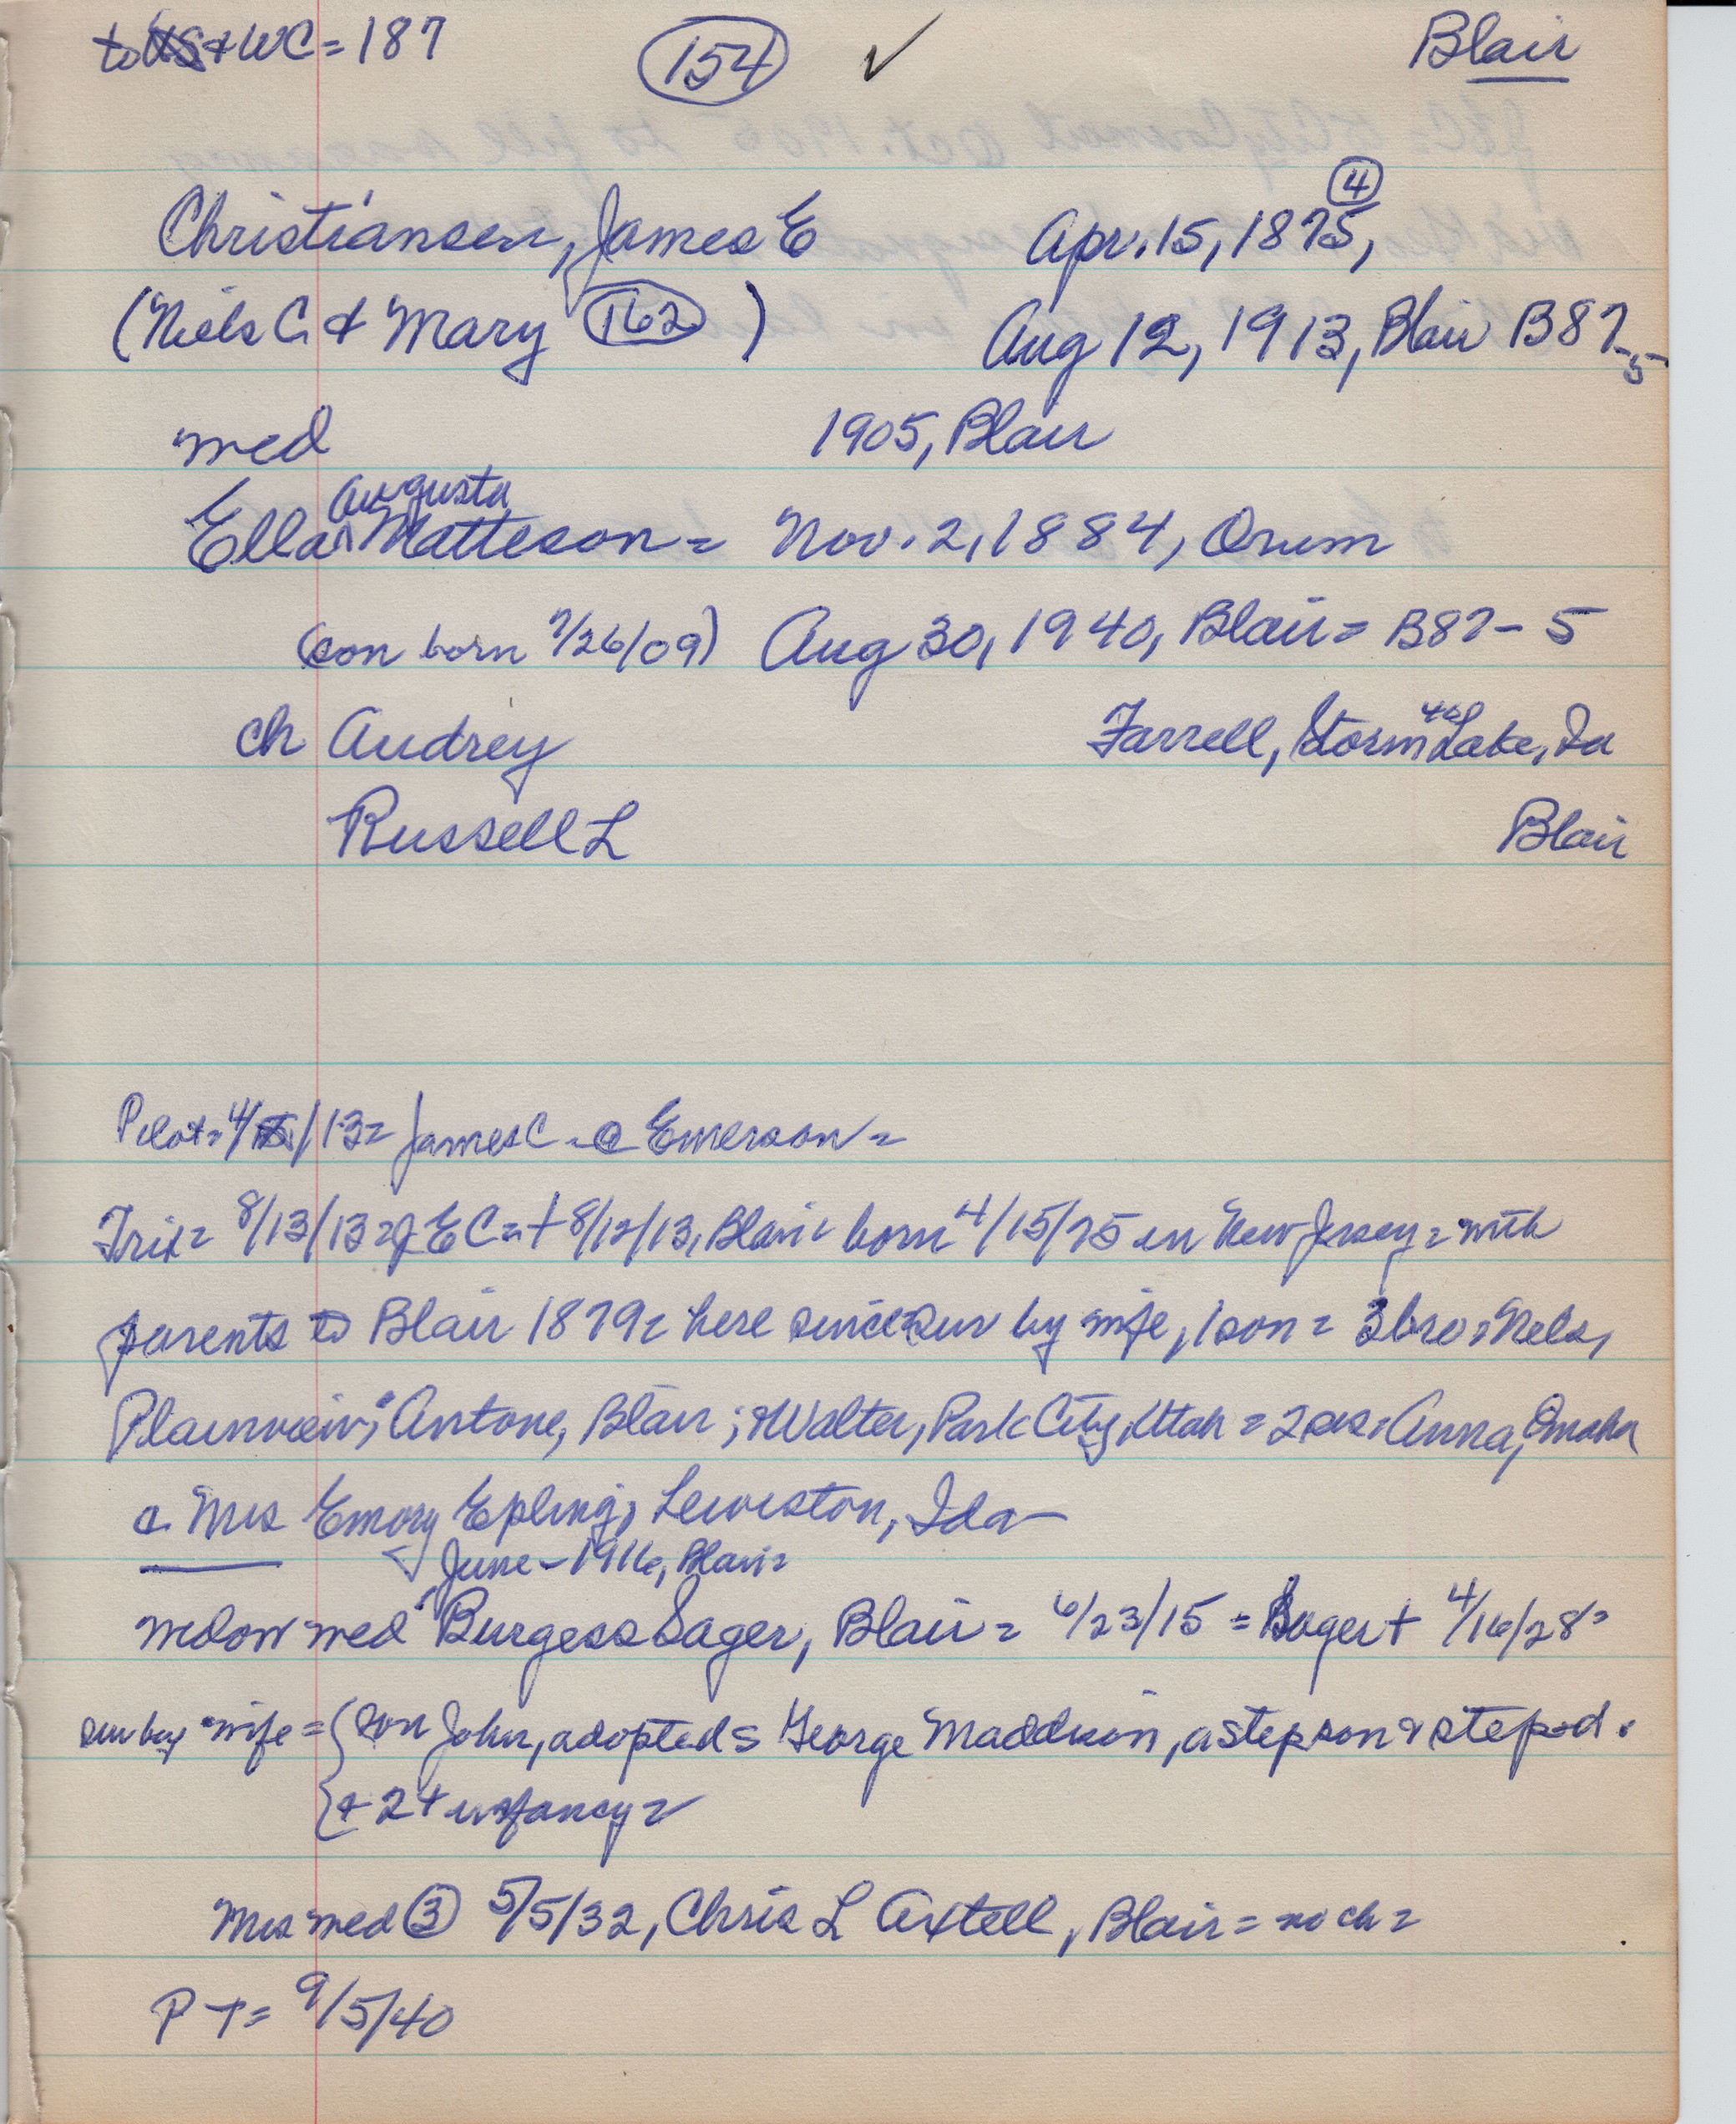 to + WC = 187 (154) ✓ Blair
(4)
Christiansen, James E Apr. 15, 1875,
(Niels C. & Mary (162) ) Aug 12, 1913, Blair B87-5
med 1905, Blair
Augusta
Ella Matteson = Nov. 2, 1884, Orum
(son born 7/26/09) Aug 30, 1940, Blair = B87-5
ch Audrey Farrell, Storm Lake, Ia
Russell L Blair
Pilot = 4/ /13 = James C = Emerson =
Trib = 8/13/13 = JEC = + 8/12/13, Blair = born 4/15/75 in New Jersey = with
parents to Blair 1879 = here since = sur by wife, 1 son = 3 bro = Nels,
Plainview; Antone, Blair; & Walter, Park City, Utah = 2 sis = Anna, Omaha
a. Mrs Emory Epling, Lewiston, Ida
June - 1916, Blair =
widow med Burgess Sager, Blair = 6/23/15 = Sager + 4/16/28 =
sur by wife = { son John, adopted s George Maddison, a stepson & step-d.
{ + 2 + infancy =
Mrs med (3) 5/5/32, Chris L Axtell, Blair = no ch =
P T = 9/5/40